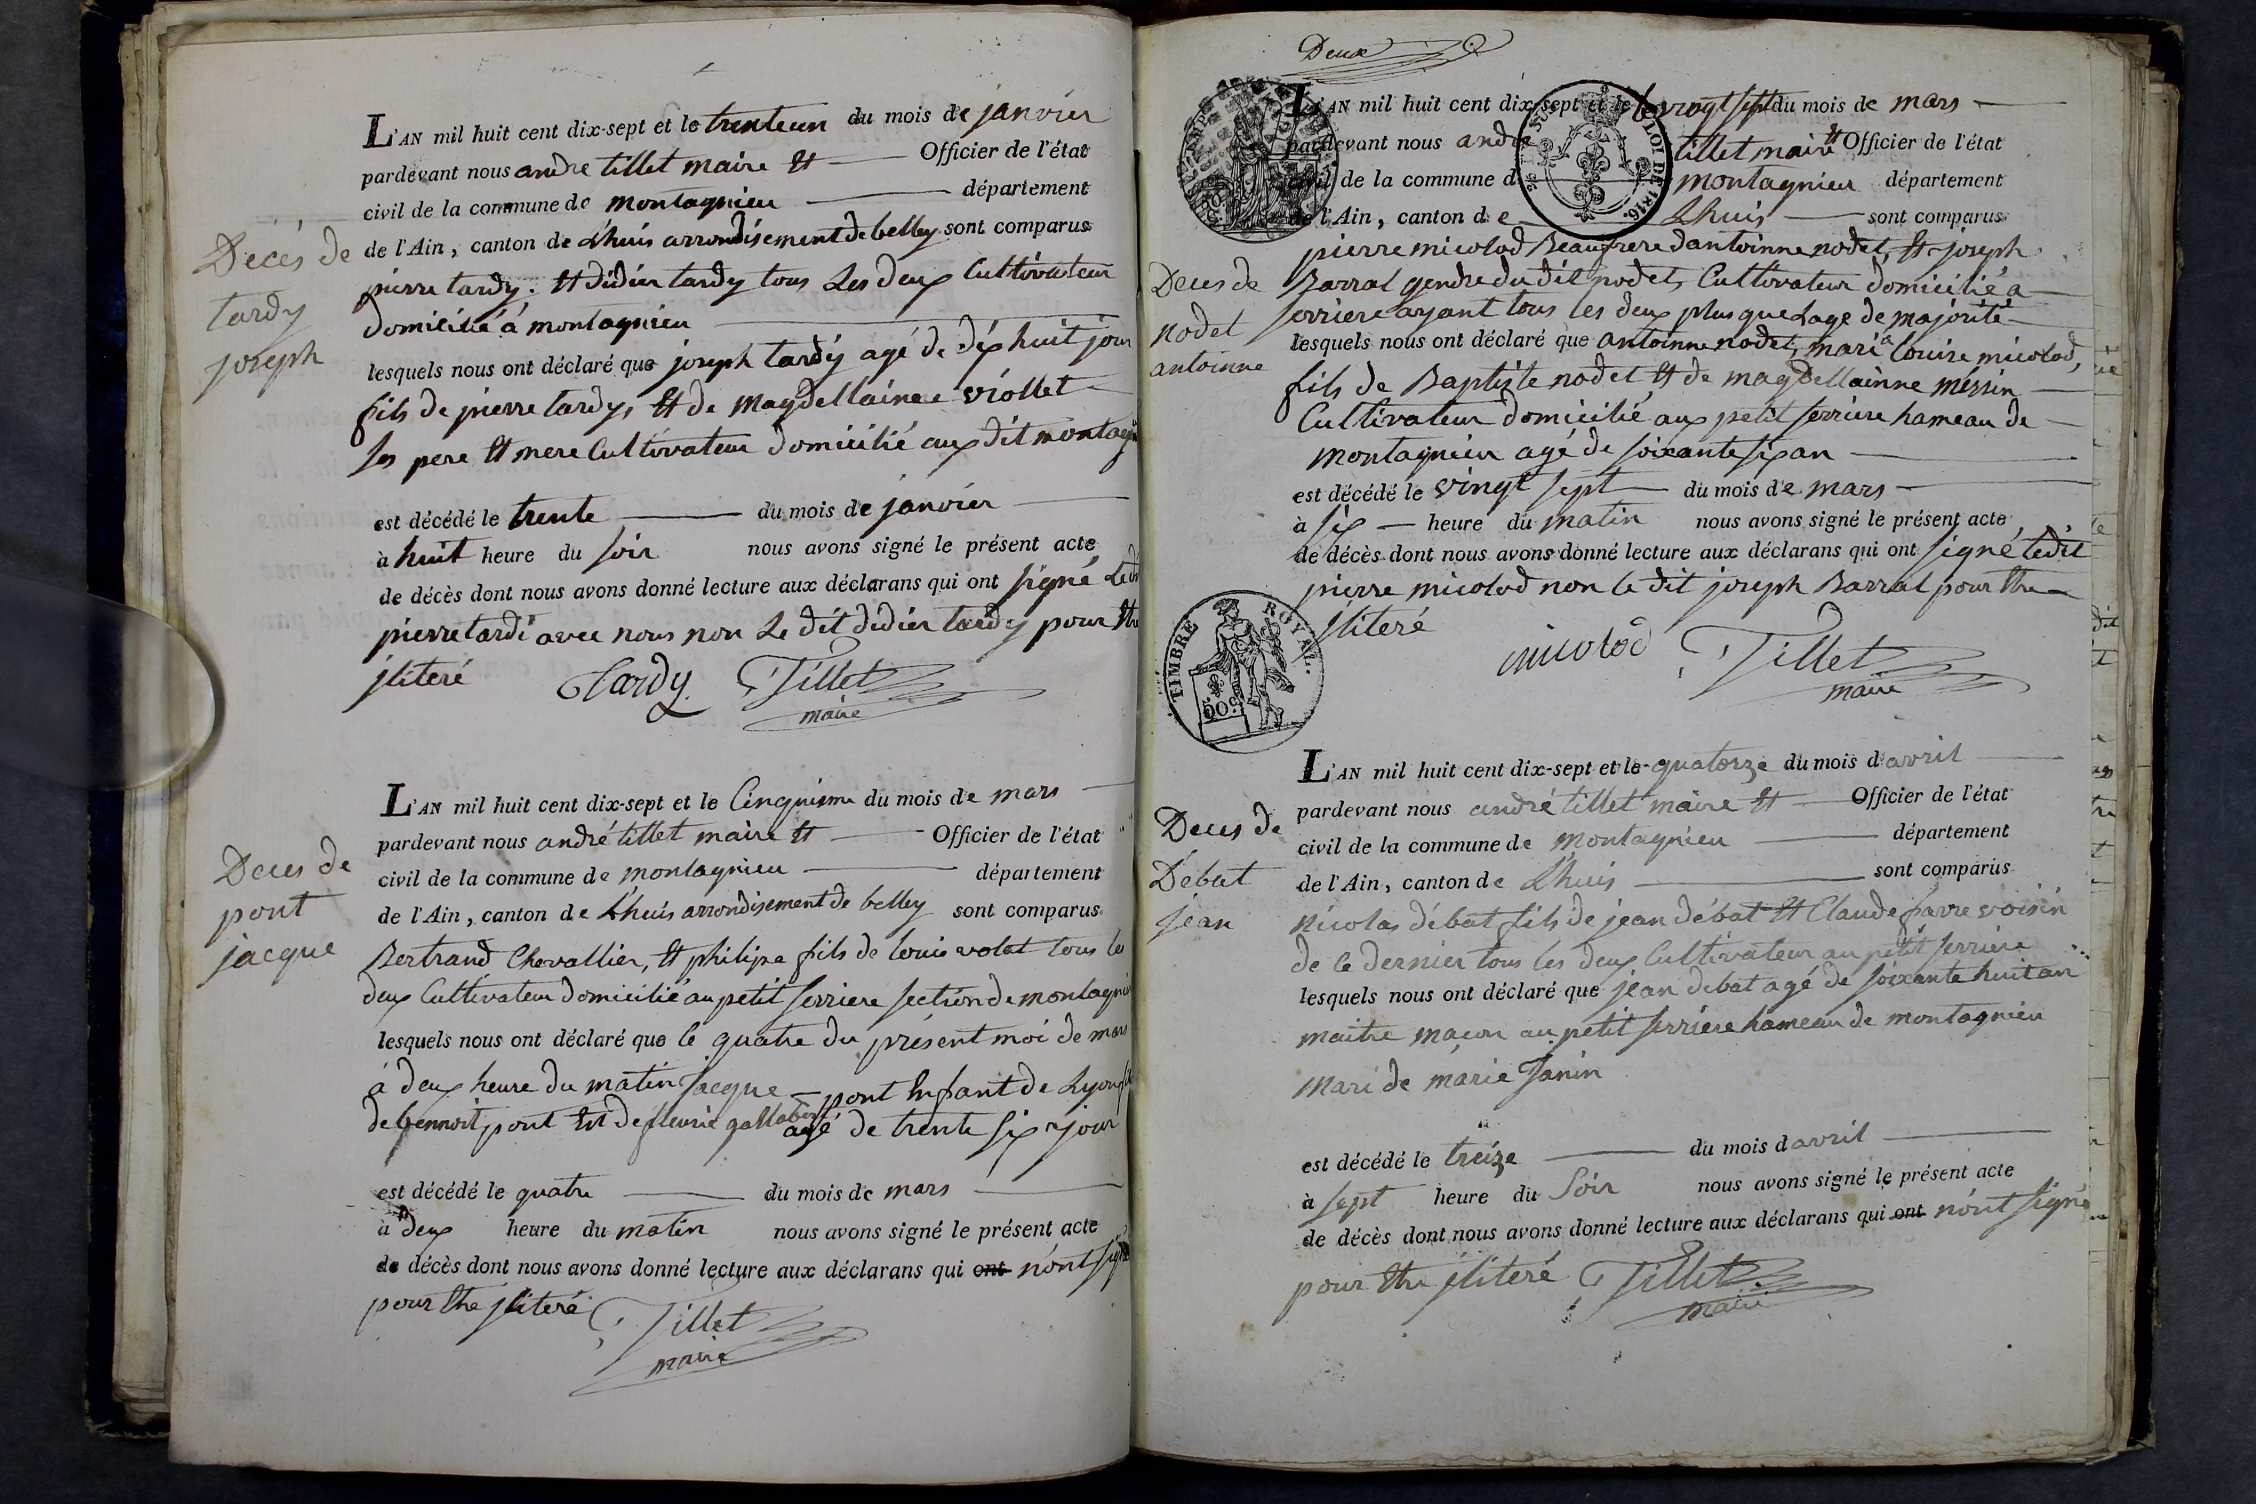 L'AN mil huit cent dix-sept et le trenteun du mois de janvier
pardevant nous andre tillet maire et Officier de l'état
civil de la commune de montagnieu département
de l'Ain, canton de Lhuis arrondisement de belley sont comparus
Décès de
tardy
joseph
pierre tardy. et didier tardy tous Les deux Cultivateur
domicilié á montagnieu
lesquels nous ont déclaré que joseph tardy agé de dix huit jour
fils de pierre tardy, et de magdellainne viollet
ses pere et mere Cultivateur domicilié aux dit montagnieu
est décédé le trente du mois de janvier
à huit heure du soir nous avons signé le présent acte
de décès dont nous avons donné lecture aux déclarans qui ont signé Ledit
pierre tardi avec nous non Le dit didier tardy pour etre
jliteré Tardy Tillet
maire
L'AN mil huit cent dix-sept et le Cinquieme du mois de mars
pardevant nous andré tillet maire et Officier de l'état
civil de la commune de montagnieu département
de l'Ain, canton de Lhuis arrondisement de belley sont comparus
Deces de
pont
jacque
Bertrand Chevallier, et philipe fils de louis volat tous les
deux Cultivateur domicilié au petit serriere section de montagnieu
lesquels nous ont déclaré que le quatre du présent moi de mars
à deux heure du matin Jacque pont Enfant de Lyon fils
de bennoit pont et de fleurie
agé de trente six jour
est décédé le quatre du mois de mars
à deux heure du matin nous avons signé le présent acte
de décès dont nous avons donné lecture aux déclarans qui ont n'ont signé
pour etre jliteré Tillet
maire
Deux
L'AN mil huit cent dix-sept et le le vingt sept du mois de mars
pardevant nous andré tillet maire et Officier de l'état
civil de la commune de montagnieu département
de l'Ain, canton de Lhuis sont comparus
LOI DE 1816.
pierre micolod Beaufrere dantoinne nodet, et joseph
Deces de
nodet
antoinne
Barral gendre du dit nodet, Cultivateur domicilié a
serriere ayant tous les deux plus que Lage de majorité
lesquels nous ont déclaré que antoinne nodet, mari a louise micolod,
fils de Baptiste nodet et de magdellainne messin
Cultivateur domicilié aux petit serriere hameau de
montagnieu agé de soixante six an
est décédé le vingt sept du mois de mars
à six heure du matin nous avons signé le présent acte
de décès dont nous avons donné lecture aux déclarans qui ont signé ledit
pierre micolod non le dit joseph Barral pour etre
jliteré
micolod Tillet
maire
TIMBRE ROYAL.
50 c.
L'AN mil huit cent dix-sept et le quatorze du mois d'avril
pardevant nous andré tillet maire et Officier de l'état
civil de la commune de montagnieu département
de l'Ain, canton de Lhuis sont comparus
Deces de
Débat
jean
nicolas débat fils de jean débat et Claude favre voisin
de ce dernier tous les deux Cultivateur au petit serriere
lesquels nous ont déclaré que jean debat agé de soixante huit an
maitre maçon au petit serriere hameau de montagnieu
mari de marie Janin
est décédé le treize du mois d avril
à sept heure du Soir nous avons signé le présent acte
de décès dont nous avons donné lecture aux déclarans qui ont n'ont signé
pour etre jliteré Tillet
maire